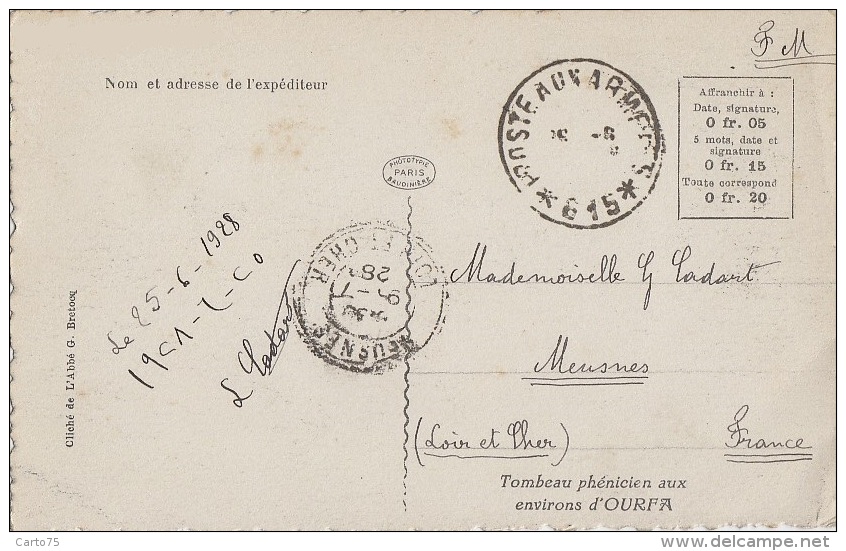 F M
Nom et adresse de l'expéditeur
POSTE AUX ARMÉES
* 615 *
Affranchir à :
Date, signature,
0 fr. 05
5 mots, date et
signature
0 fr. 15
Toute correspond
0 fr. 20
PHOTOTYPIE
PARIS
BAUDINIÈRE
Le 25-6-1928
L Cadart
LOIR ET CHER
28
MEUSNES
Mademoiselle G Cadart
Meusnes
(Loir et Cher)
France
Cliché de L'Abbé G. Bretocq
Tombeau phénicien aux
environs d'OURFA
Carto75
www.delcampe.net